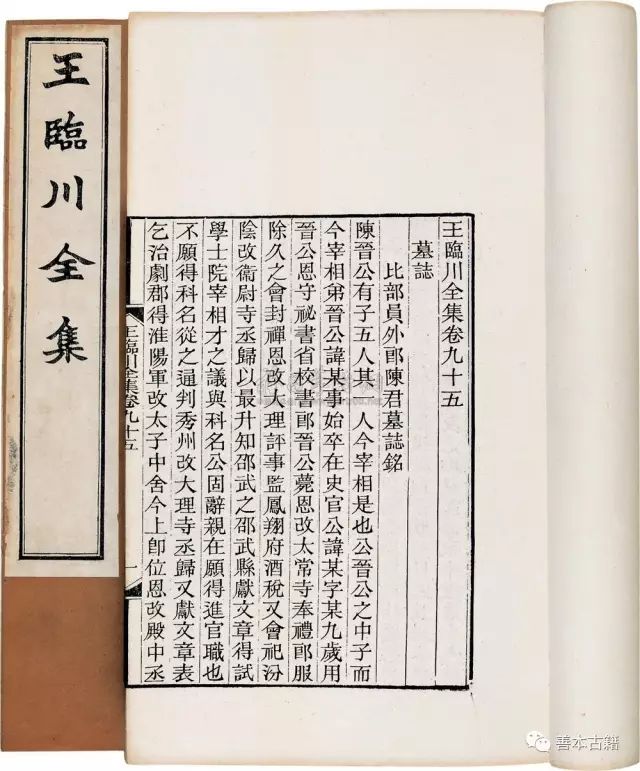 王臨川全集
王臨川全集卷九十五
墓誌
比部員外郎陳君墓誌銘
陳晉公有子五人其 人今宰相是也公晉公之中子而
今宰相弟晉公諱某事始卒在史官公諱某字某九歲用
晉公恩守祕書省校書郎晉公薨恩改太常寺奉禮郎服
除久之會封禪恩改大理評事監鳳翔府酒稅又會祀汾
陰改衞尉寺丞歸以最升知邵武之邵武縣獻文章得試
學士院宰相才之議與科名公固辭親在願得進官職也
不願得科名從之通判秀州改大理寺丞歸又獻文章表
乞治劇郡得淮陽軍改太子中舍今上卽位恩改殿中丞
王臨川全集卷九十五
一
善本古籍